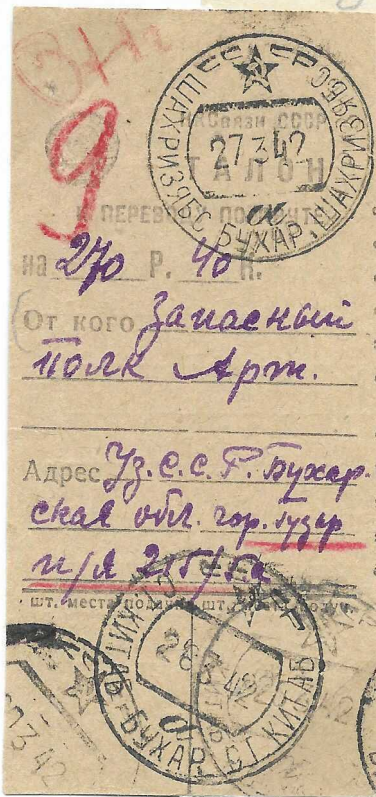 9
ШАХРИЗЯБС БУХАР. ШАХРИЗЯБС
27 3 42
НКСвязи СССР
ТАЛОН
К ПЕРЕВОДУ ПО ПОЧТЕ
на 270 Р. 40 К.
От кого Запасный
Полк Арт.
Адрес Уз. С. С. Р. Бухар-
ская обл. гор. Гузар
п/я
шт. места подачи шт. места получ.
СТ. КИТАБ БУХАР СТ. КИТАБ
26 3 42